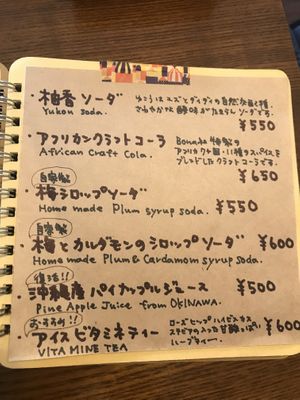 ・柚香ソーダ
Yukou soda.
ゆこうはユズとダイダイの自然交配種。
さわやかな酸味がたまらんソーダです。
¥550
・アフリカンクラフトコーラ
African Craft Cola.
特製の
アフリカ7ヵ国・11種のスパイスを
ブレンドしたクラフトコーラです。
¥650
自家製
・梅シロップソーダ ¥550
Home made Plum syrup soda.
自家製
・梅とカルダモンのシロップソーダ ¥600
Home made Plum & Cardamom syrup soda.
復活!!
・沖縄産パイナップルジュース ¥500
Pine Apple Juice from OKINAWA.
おすすめ!!
・アイスビタミネティー
VITAMINE TEA
ローズヒップ ハイビスカス
ステビアの入った甘酸っぱい
ハーブティー。
¥600